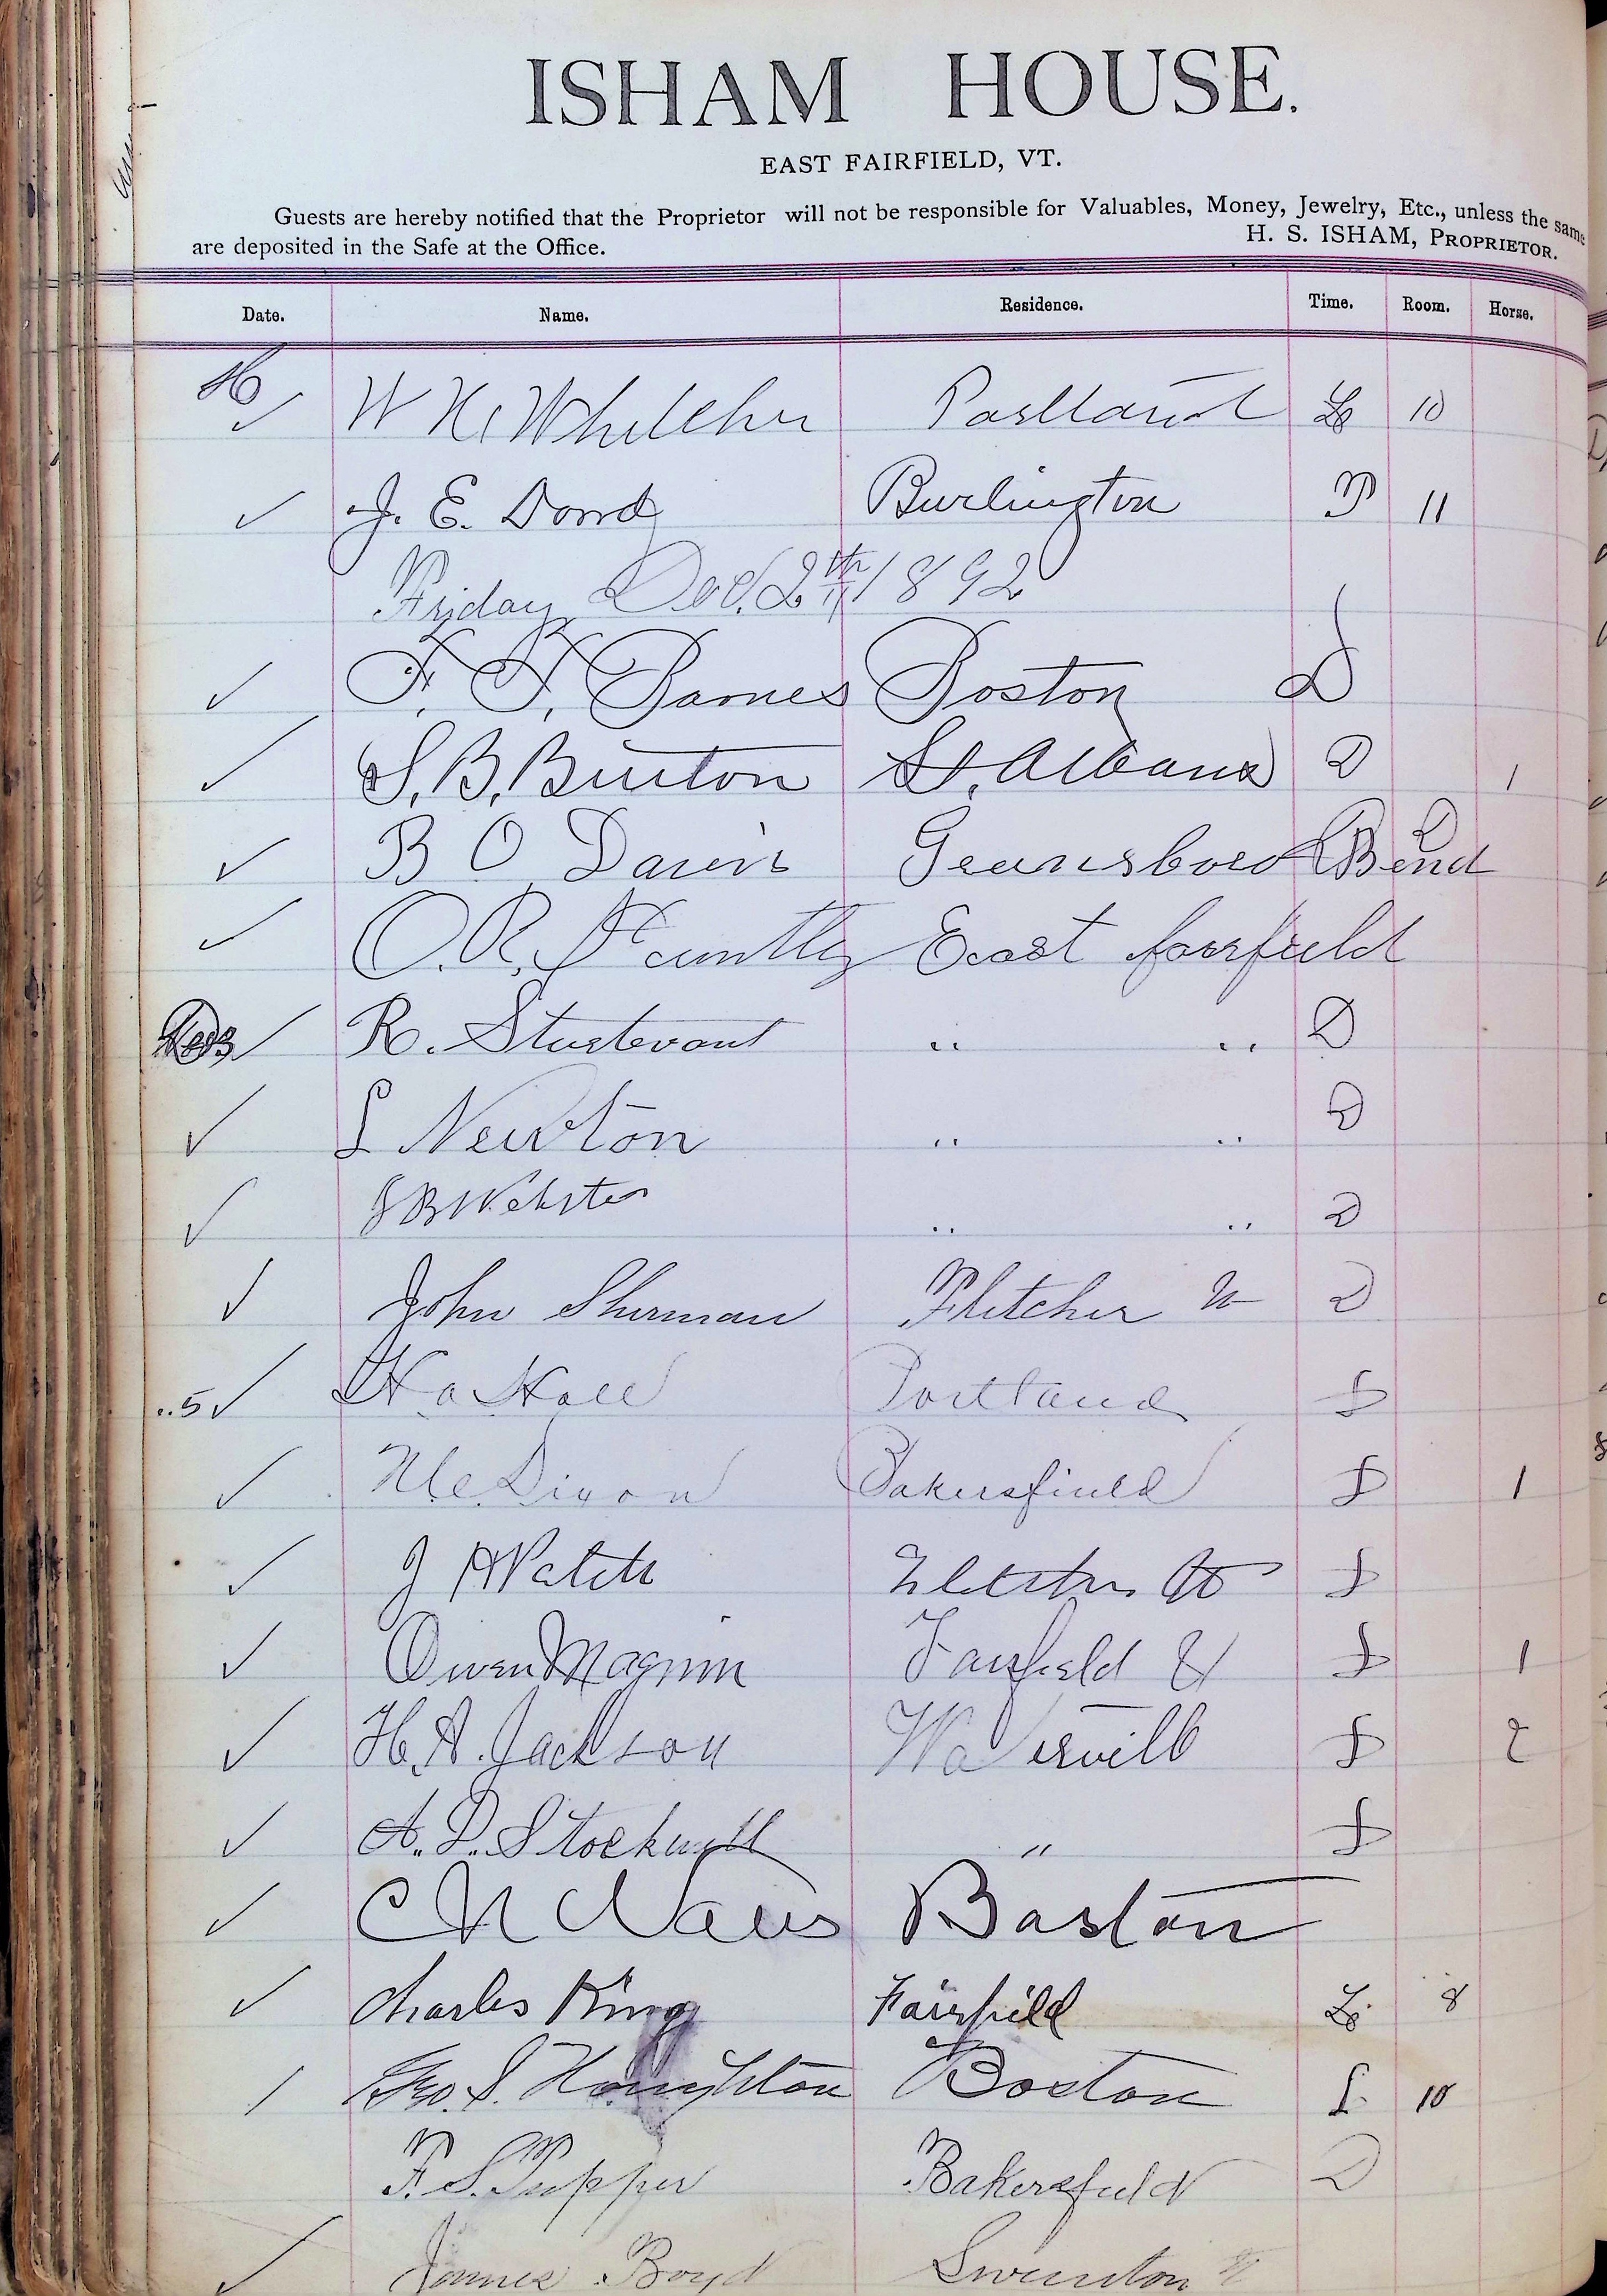 ISHAM HOUSE.
EAST FAIRFIELD, VT.
Guests are hereby notified that the Proprietor will not be responsible for Valuables, Money, Jewelry, Etc., unless the same
are deposited in the Safe at the Office. H. S. ISHAM, PROPRIETOR.
Date. Name. Residence. Time. Room. Horse.
W H Whitcher Portland 10
J. E. Dowd Burlington 11
Friday Dec. 2th 1892
F. F. Barnes Boston D
S. B. Burton St. Albans D 1
B O Davis Greensboro Bend D
O. R. East fairfield
R. Sturtevant " " D
L Newton " " D
J B Webster " " D
John Sherman Fletcher Vt D
H a Hall Portland D
Dixon Bakersfield D 1
J H Patch Fletcher Vt D
Owen Maginn Fairfield Vt D 1
H. A. Jackson Waterville D 2
A. D. Stockwell " D
C N Boston
Charles King Fairfield L 8
Geo. S. Houghton Boston L 10
F. S. Tupper Bakersfield D
James Boyd Swanton Vt